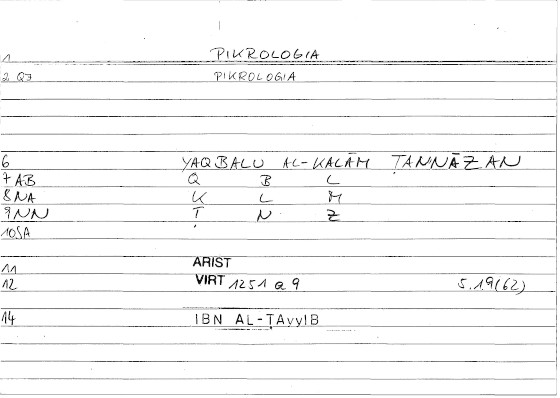 1 PIKROLOGIA
2 Q3 PIKROLOGIA
6 YAQBALU AL-KALĀM ṬANNĀZAN
7 AB Q B L
8 NA K L M
9 NN Ṭ N Z
10 SA
11 ARIST
12 VIRT 1251 a 9 5.19(62)
14 IBN AL-ṬAyyIB